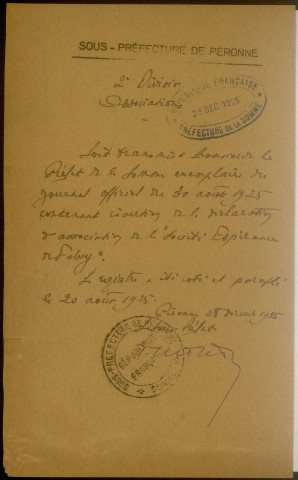 SOUS - PRÉFECTURE DE PÉRONNE
2e Division
Associations
RÉPUBLIQUE FRANÇAISE
29 DEC 1925
PRÉFECTURE DE LA SOMME
Soit transmis à Monsieur le
Préfet de la Somme exemplaire du
Journal officiel du 30 août 1925
contenant insertion de la déclaration
d'association de l' "Société Espérance
de Falvy".
Le registre a été coté et paraphé
le 20 août 1925.
Péronne 28 Décembre 1925
Le Sous-Préfet
SOUS-PRÉFECTURE DE PÉRONNE
RÉPUBLIQUE
FRANÇAISE
SOMME